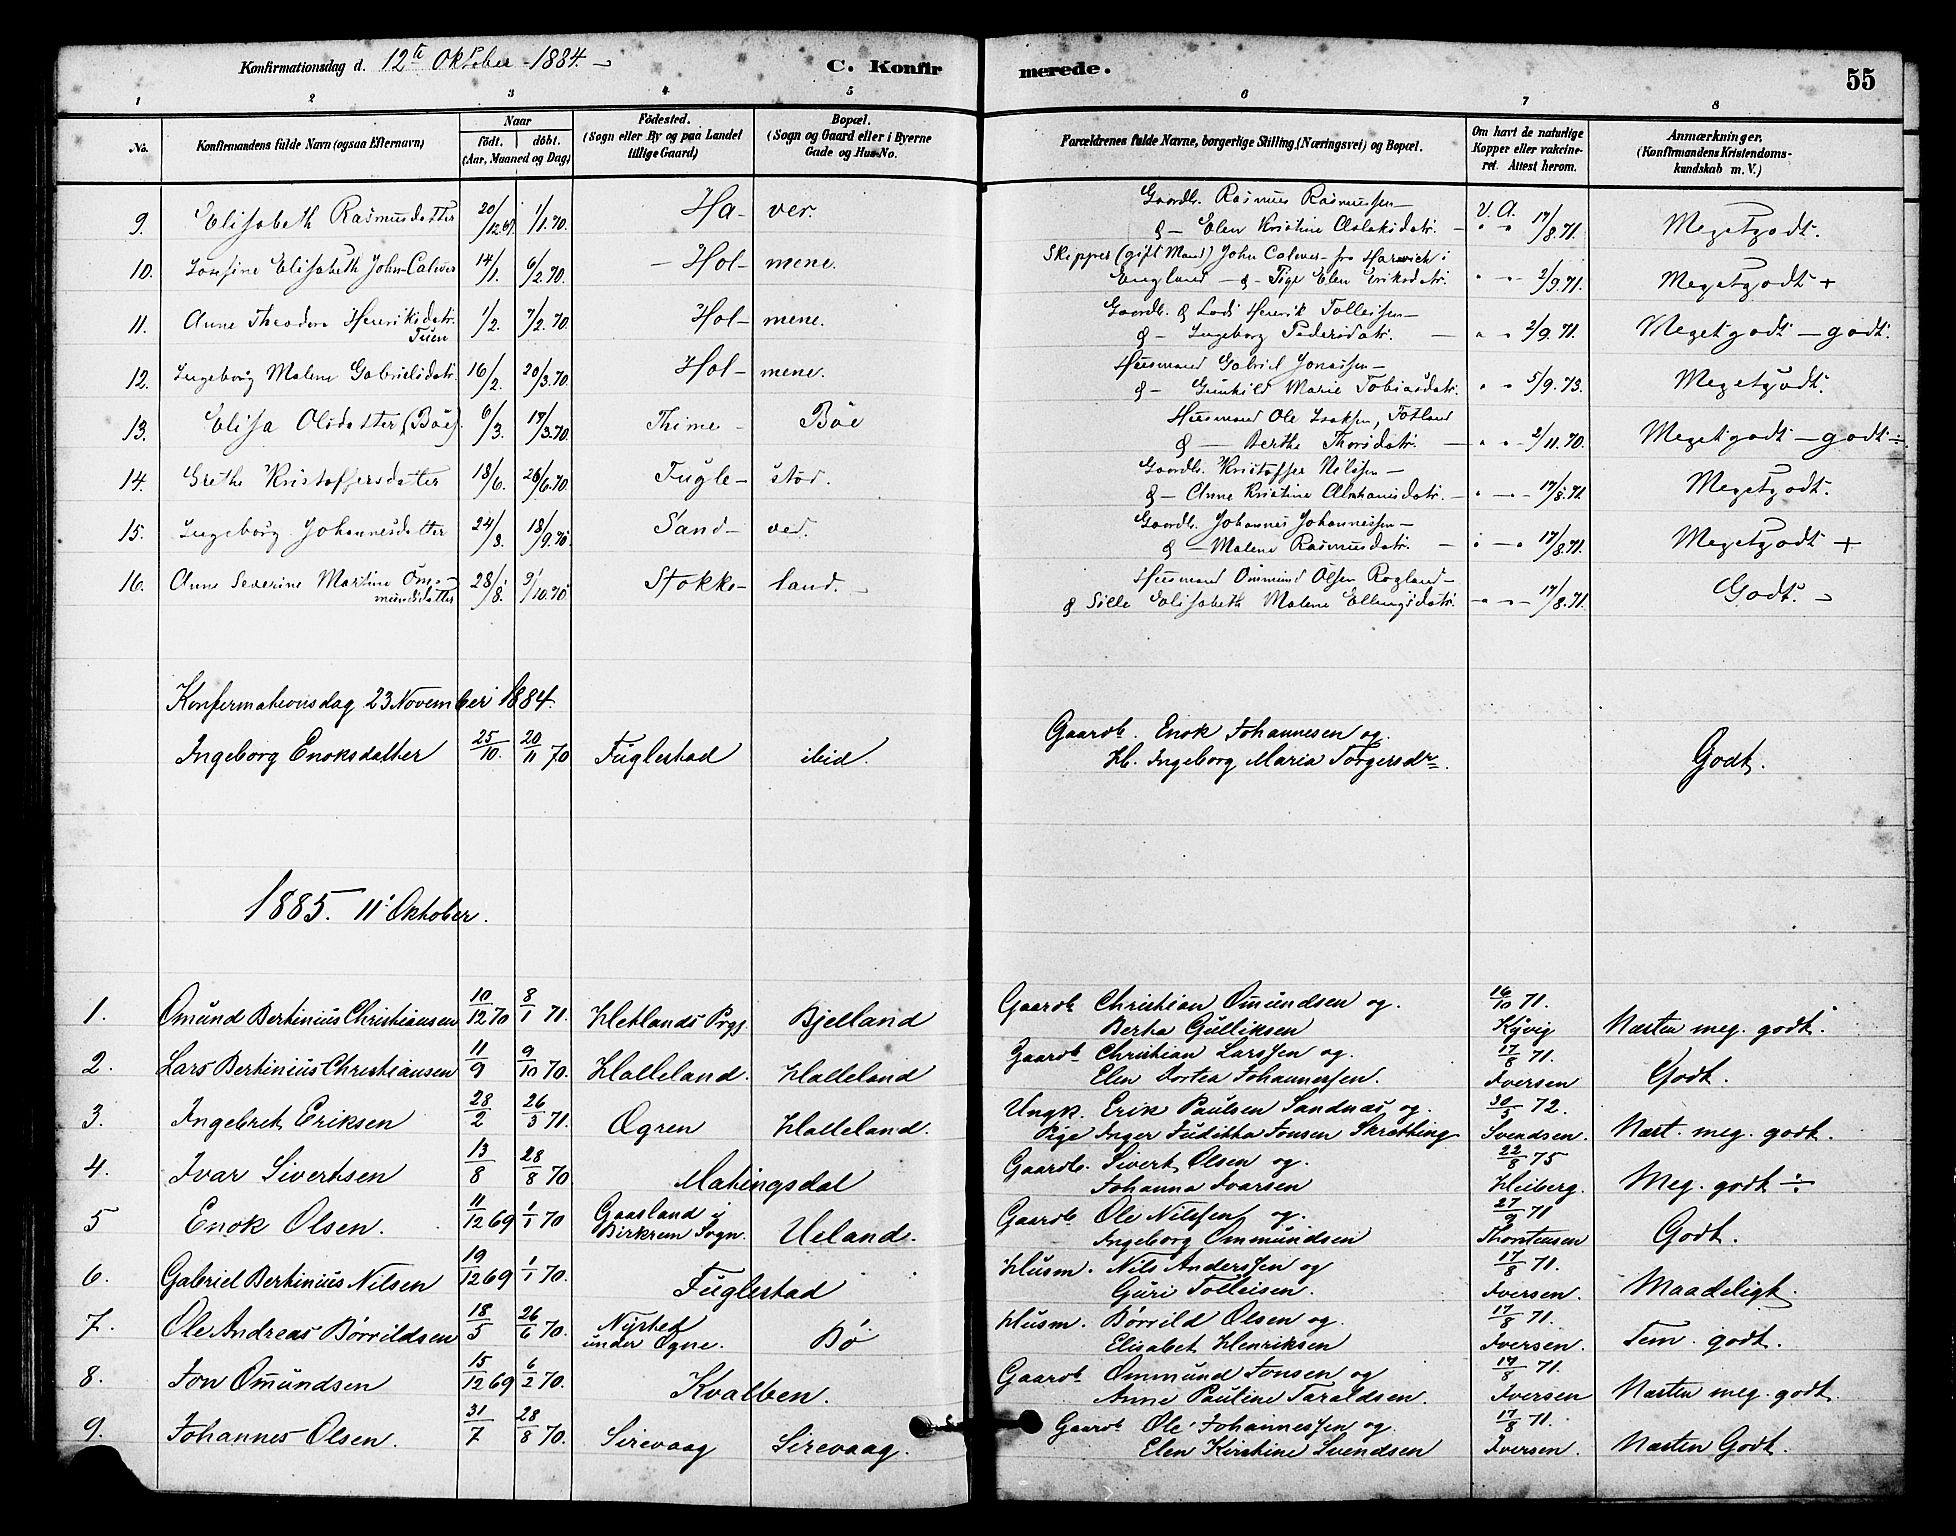 Konfirmationsdag d. 12te Oktober 1884. C. Konfirmerede. 55
1 2 3 4 5 6 7 8
No. Konfirmandens fulde Navn (ogsaa Efternavn) Naar födt. döbt. (Aar, Maaned og Dag) Födested. (Sogn eller By og paa Landet tillige Gaard) Bopæl. (Sogn og Gaard eller i Byerne Gade og Hus-No. Forældrenes fulde Navne, borgerlige Stilling, (Næringsvei) og Bopæl. Om havt de naturlige Kopper eller vakcineret. Attest herom. Anmærkninger, (Konfirmandens Kristendomskundskab m. V.)
Gaardb. Rasmus Rasmussen –
9. Elisabeth Rasmusdatter 20/12 69. 1/1.70. Ha – ver. & – Elen Kristine Aslaksdatr. – V. A. 17/8.71. Megetgodt.
Skipper (gift Mand) John Calver fra Harwich i
10. Josefine Elisabeth John Calver 14/1. 6/2.70. – Hol – mene. England – & – Pige Elen Eriksdatr. " " 2/9.71. Megetgodt +
Gaardb. & Lods Henrik Tolleifsen –
11. Anne Theodora Henriksdatr. Tuen 1/2. 7/2.70. Hol – mene. & – Ingeborg Pedersdatr. – " " 2/9.71. Megetgodt – godt.
Husmand Gabriel Jonassen –
12. Ingeborg Malene Gabrielsdatr. 16/2. 20/3.70. Hol – mene. & – Gunhild Marie Tobiasdatr. " " 5/9.73. Megetgodt.
Husmand Ole Isaksen, Fotland
13. Elisa Olsdatter (Böe). 6/3. 17/3.70. Thime – Böe & – Berthe Thorsdatr. – " " 2/11.70. Megetgodt – godt ÷
Gaardb. Kristoffer Nilssen –
14. Grethe Kristoffersdatter 18/6. 26/6.70 Fugle – stad. & – Anne Kristine Abrahamsdatr. – " – " 17/8.71. Megetgodt.
Gaardb. Johannes Johannessen –
15. Ingeborg Johannesdatter 24/8. 18/9.70. Sand – ved. & – Malene Rasmusdatr. – " – " 17/8.71. Megetgodt +
Husmand Ommund Olsen Rogland –
16. Anne Severine Martine Ommundsdatter 28/8. 9/10.70 Stokke – land. – & Sille Elisabeth Malene Ellingsdatr. – " – " – 17/8.71. Godt.
Konfermationsdag 23 November 1884.
Gaardb. Enok Johannesen og
Ingeborg Enoksdatter 25/10. 20/11 70 Fuglestad ibid. H. Ingeborg Maria Torgersdr. Godt.
1885. 11' Oktober.
1. Omund Bertinius Christiansen 10/12 70 8/1 71. Hetlands Prgj. Bjelland Gaardb. Christian Omundsen og
Bertha Gulliksen 16/10 71. Kyvig Næsten meg. godt.
2. Lars Bertinius Christiansen 11/9 9/10 70. Halleland. Halleland Gaardb. Christian Larssen og
Elen Dortea Johannessen. 17/8 71. Iversen Godt.
3. Ingebret Eriksen 28/2 26/3 71. Ogren Halleland. Ungk. Erik Paulsen Sandnæs og
Pige Inger Juditha Jonsen Skrætting 30/5 72. Svendsen. Næst. meg. godt.
4 Ivar Sivertsen 13/8 28/8 70 Matingsdal Gaardb. Sivert Olsen og
Johanna Ivarsen 22/8 75 Heiberg. Meg. godt ÷
5 Enok Olsen. 11/12 69 1/1 70 Gaasland i Birkrem Sogn. Ueland. Gaardb. Ole Nilssen og
Ingeborg Ommundsen 27/9 71 Thorstensen Godt.
6. Gabriel Bertinius Nilsen 19/12 69 1/1 70. Fuglestad Husm. Nils Anderssen og
Guri Tolleisen. 17/8 71. Iversen. Maadeligt.
7. Ole Andreas Børrildsen 18/5 26/6 70. Nysted under Ogne. Bø Husm. Børrild Olsen og
Elisabet Henriksen 17/8 71. Iversen. Tem. godt.
8. Jon Omundsen 15/12 69 6/2 70. Kvalben. Gaardb. Ommund Jonsen og
Anne Pauline Taraldsen. 17/8 71. Iversen Næsten meg. godt.
9. Johannes Olsen. 31/7 28/8 70. Sirevaag Sirevaag. Gaardb. Ole Johannessen og
Elen Kirstine Svendsen 17/8 71. Iversen. Næsten Godt.